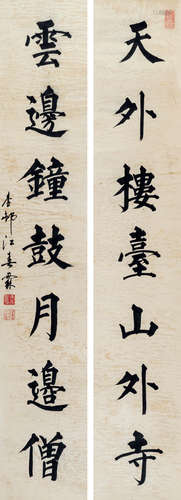 天外樓臺山外寺
雲邊鐘鼓月邊僧
杏邨江春霖